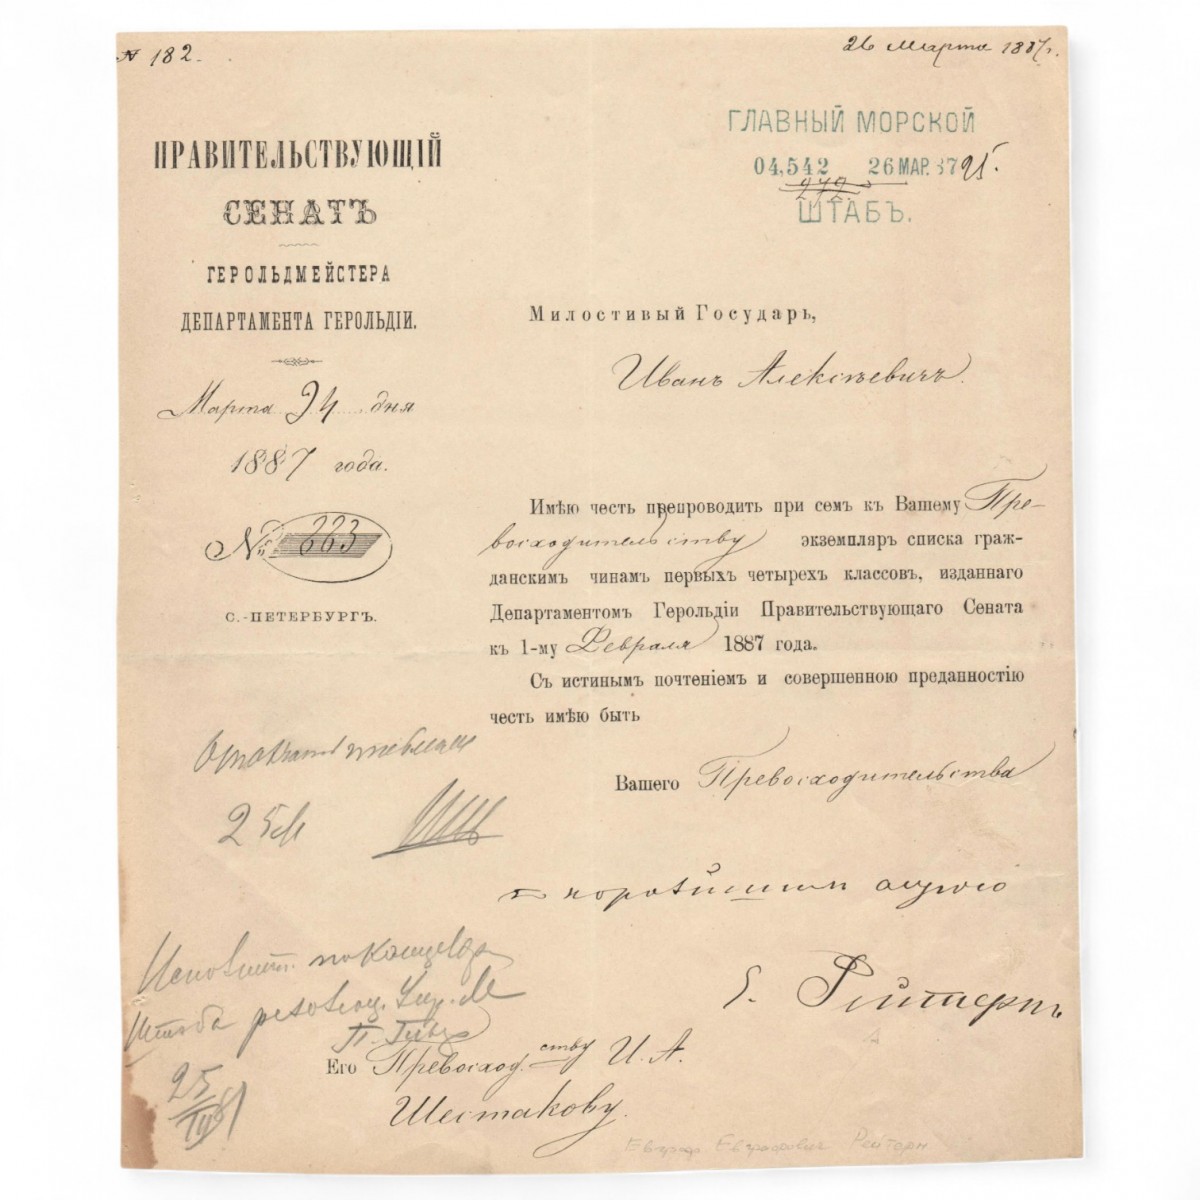 № 182.
26 Марта 1887 г.
ГЛАВНЫЙ МОРСКОЙ
04,542 26 МАР. 87 25.
272
ШТАБЪ.
ПРАВИТЕЛЬСТВУЮЩІЙ
СЕНАТЪ
ГЕРОЛЬДМЕЙСТЕРА
ДЕПАРТАМЕНТА ГЕРОЛЬДІИ.
Марта 24 дня
1887 года.
№ 223
С.-ПЕТЕРБУРГЪ.
Милостивый Государь,
Иванъ Алексѣевичъ.
Имѣю честь препроводить при семъ къ Вашему Пре-
восходительству экземпляръ списка граж-
данскимъ чинамъ первыхъ четырехъ классовъ, изданнаго
Департаментомъ Герольдіи Правительствующаго Сената
къ 1-му Февраля 1887 года.
Съ истиннымъ почтеніемъ и совершенною преданностію
честь имѣю быть
Вашего Превосходительства
покорнѣйшимъ слугою
Е. Рейтернъ
25 М
Штаба
25
III 87
Его Превосход.ству И. А.
Шестакову.
Евграф Евграфович Рейтерн